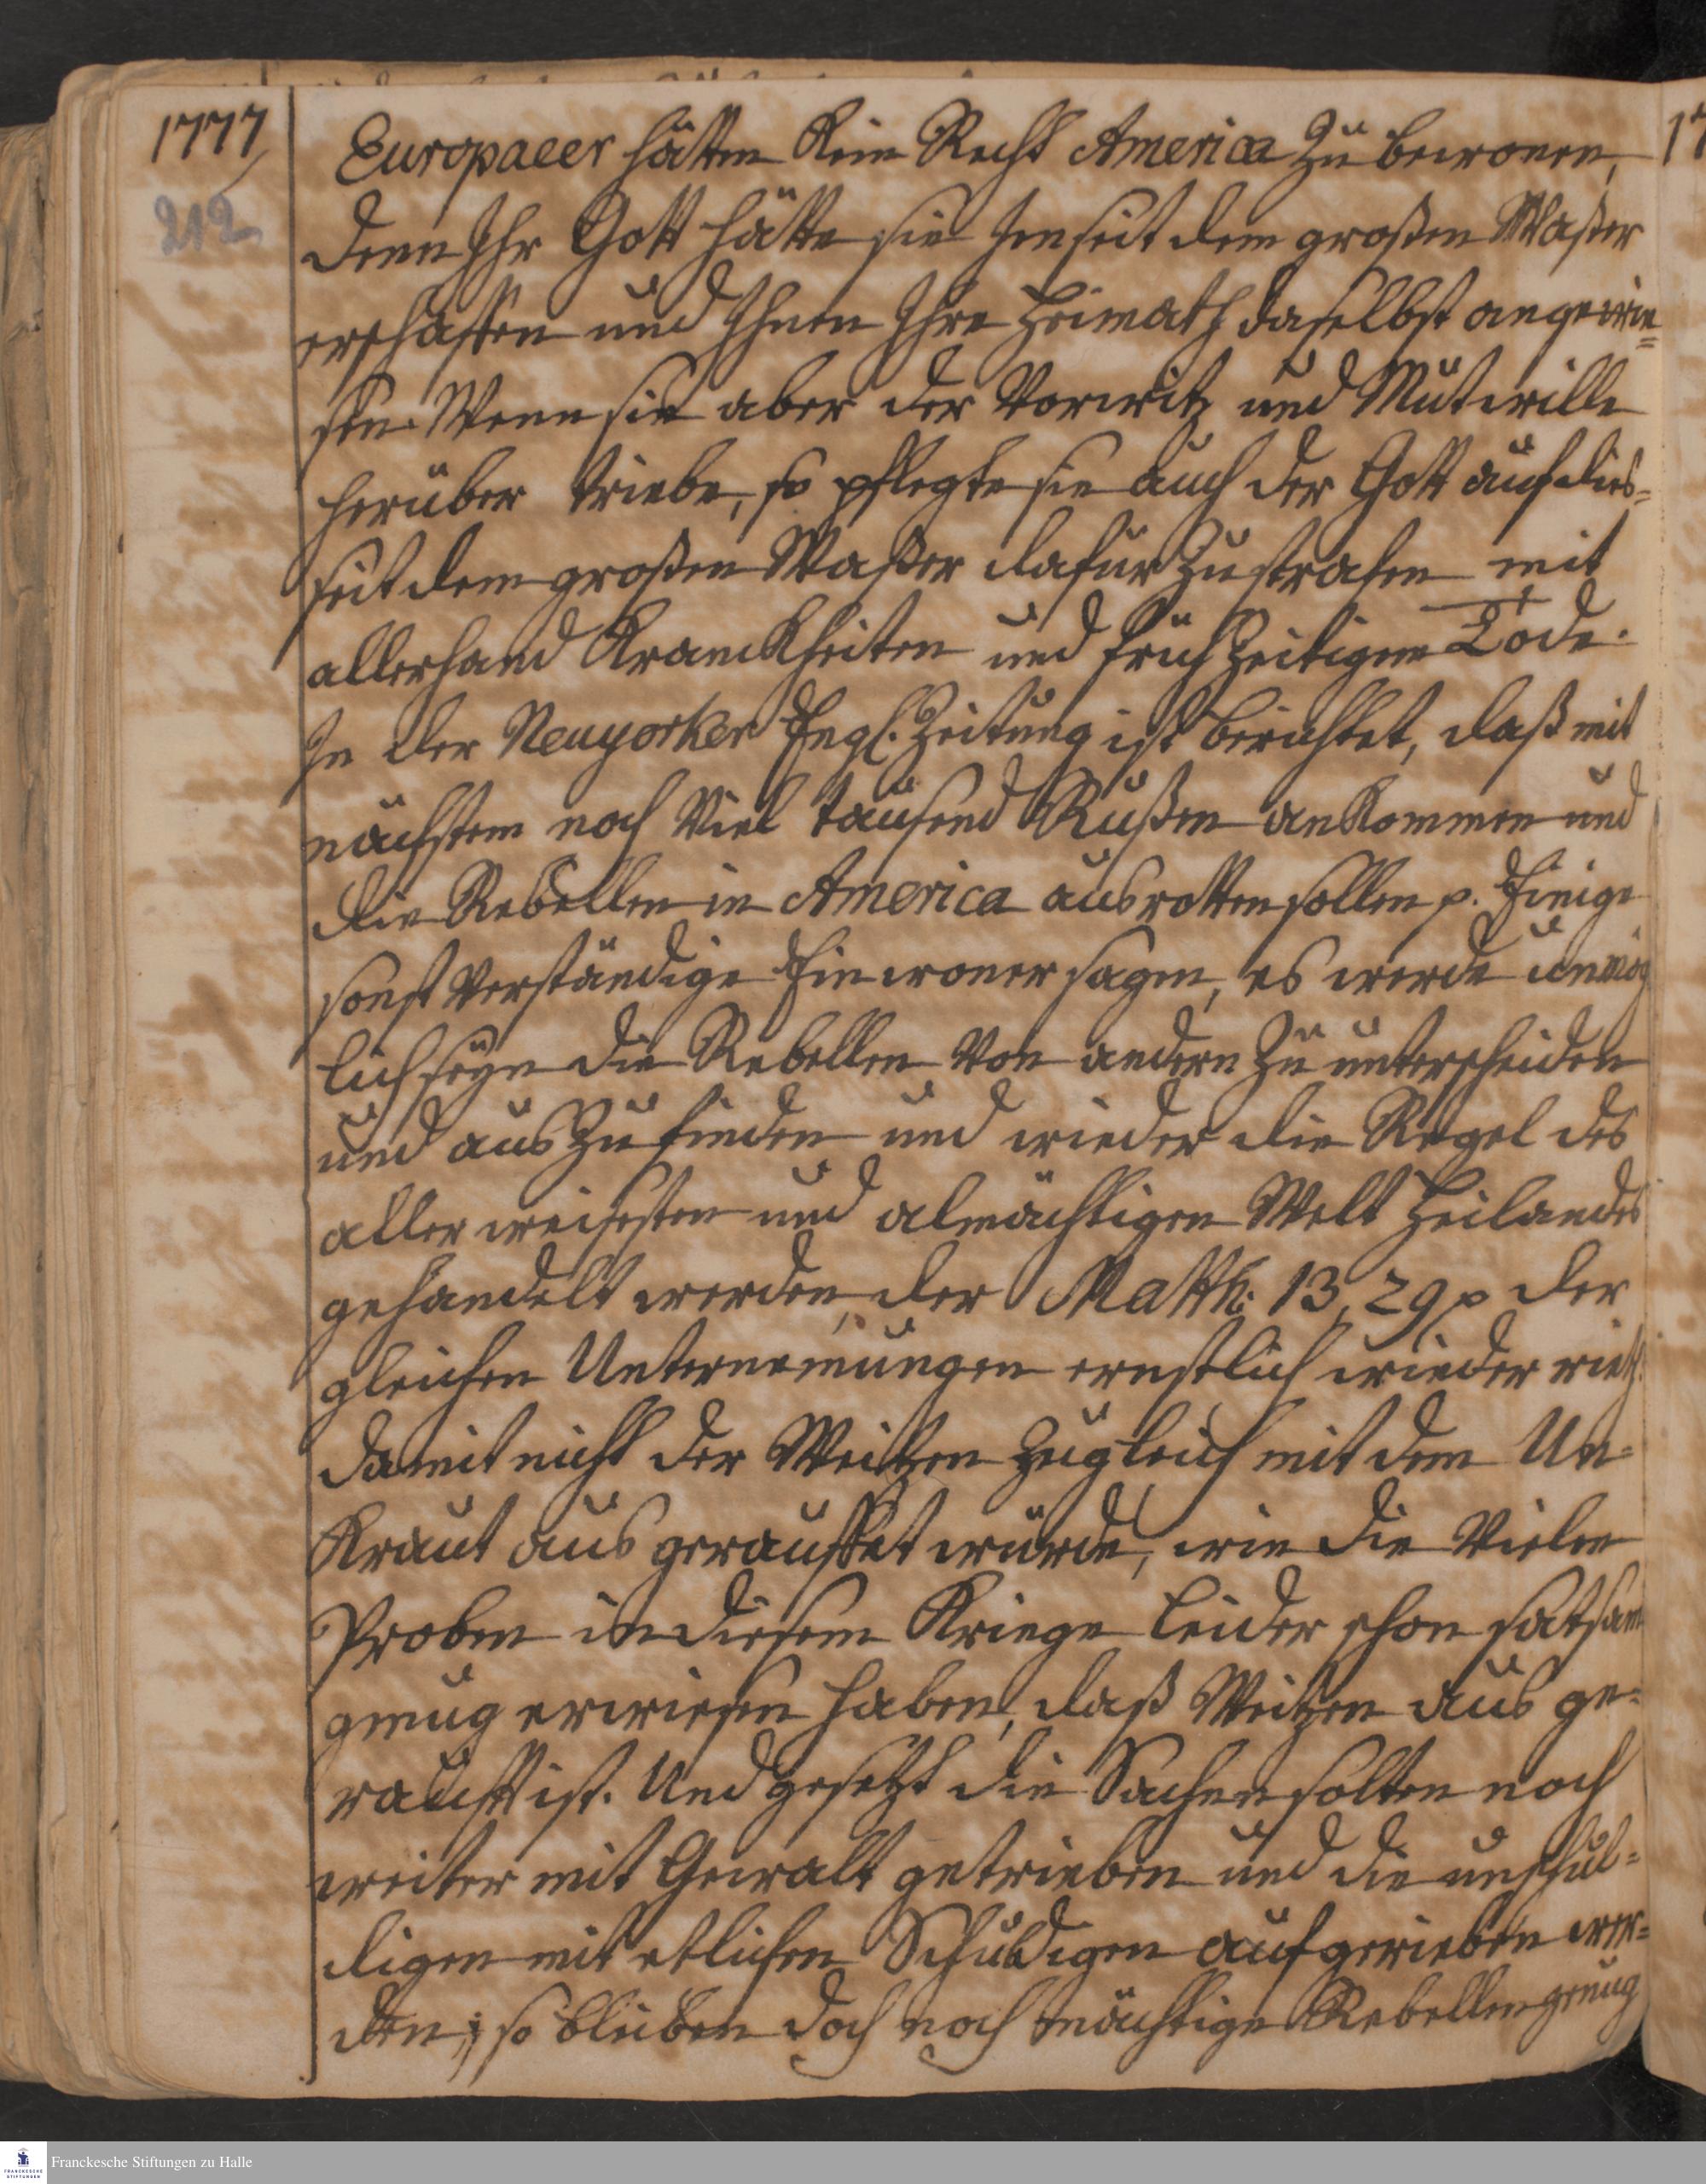 1777
212
Europaeer hätten kein Recht America zu bewonen,
denn Ihr Gott hätte sie jenseit dem großen Waßer
erschaffen und Ihnen Ihre Heimath daselbst angewie=
sen. Wenn sie aber der Vorwitz und Mutwille
herüber triebe, so pflegte sie auch der Gott auf dies=
seit dem großen Waßer dafür zu strafen mit
allerhand Kranckheiten und frühzeitigem Tode.
In der Neuyorker Engl. Zeitung ist berichtet, daß mit
nächstem noch viel tausend Rußen ankommen und
die Rebellen in America ausrotten sollen p. Einige
sonst verständige Einwoner sagen, es werde unmög
lich seyn die Rebellen von andern zu unterscheiden
und aus zu finden und wieder die Regel des
aller weisesten und almächtigen Welt Heilandes
gehandelt werden, der Matth: 13, 29 p der
gleichen Unternemungen ernstlich wieder rieth:
damit nicht der Weitzen zugleich mit dem Un=
kraut aus geraufft würde, wie die vielen
Proben in diesem Kriege leider schon satsam
genug erwiesen haben, daß Weitzen aus ge=
raufft ist. Und gesetzt die Sachen solten noch
weiter mit Gewalt getrieben und die unschul=
digen mit etlichen Schuldigen aufgerieben wer=
den; so blieben doch noch mächtige Rebellen genug
Franckesche Stiftungen zu Halle
FRANCKESCHE
STIFTUNGEN